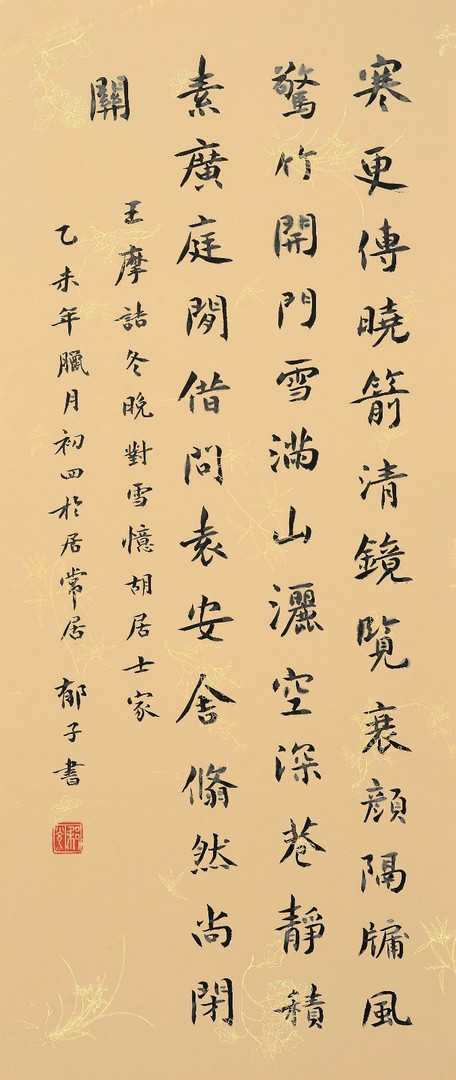 寒更傳曉箭清鏡覽衰顏隔牖風
驚竹開門雪滿山灑空深巷靜積
素廣庭閒借問袁安舍翛然尚閉
關
王摩詰冬晚對雪憶胡居士家
乙未年臘月初四於居常居 郁子書